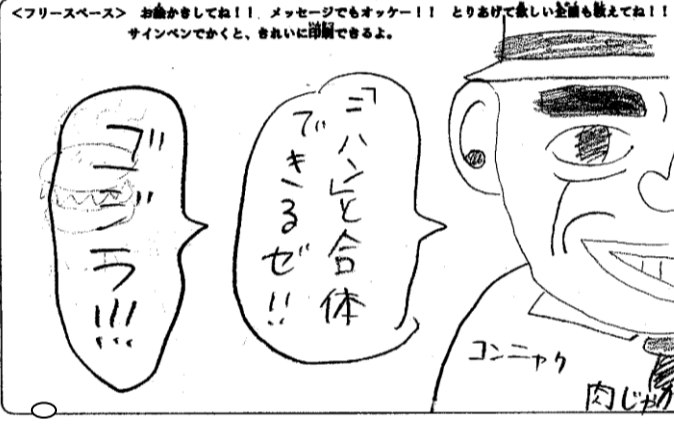 <フリースペース> お絵かきしてね!! メッセージでもオッケー!! とりあげて欲しい企画も教えてね!!
サインペンでかくと、きれいに印刷できるよ。
「ニハン」と合体
できるゼ!!
コンニャク
肉じゃが